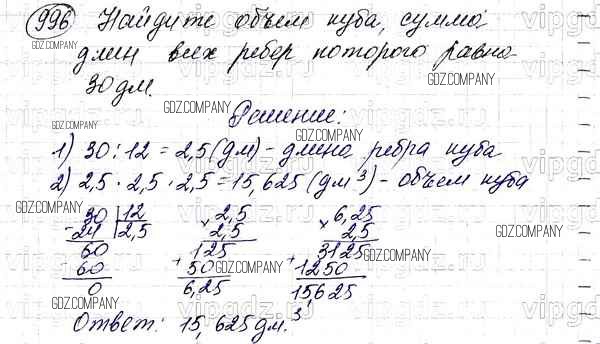 996. Найдите объем куба, сумма
длин всех ребер которого равна
30 дм.
Решение:
1) 30 : 12 = 2,5 (дм) - длина ребра куба
2) 2,5 · 2,5 · 2,5 = 15,625 (дм³) - объем куба
30 | 12
- 24 | 2,5
60
60
0
× 2,5
2,5
125
+ 50
6,25
× 6,25
2,5
3125
+ 1250
15625
Ответ: 15,625 дм.³
GDZ.COMPANY
GDZ.COMPANY
GDZ.COMPANY
GDZ.COMPANY
GDZ.COMPANY
GDZ.COMPANY
GDZ.COMPANY
GDZ.COMPANY
GDZ.COMPANY
GDZ.COMPANY
GDZ.COMPANY
vipgdz.ru
vipgdz.ru
vipgdz.ru
vipgdz.ru